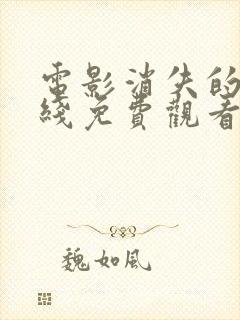 電影消失的
綫免費觀看
魏如風